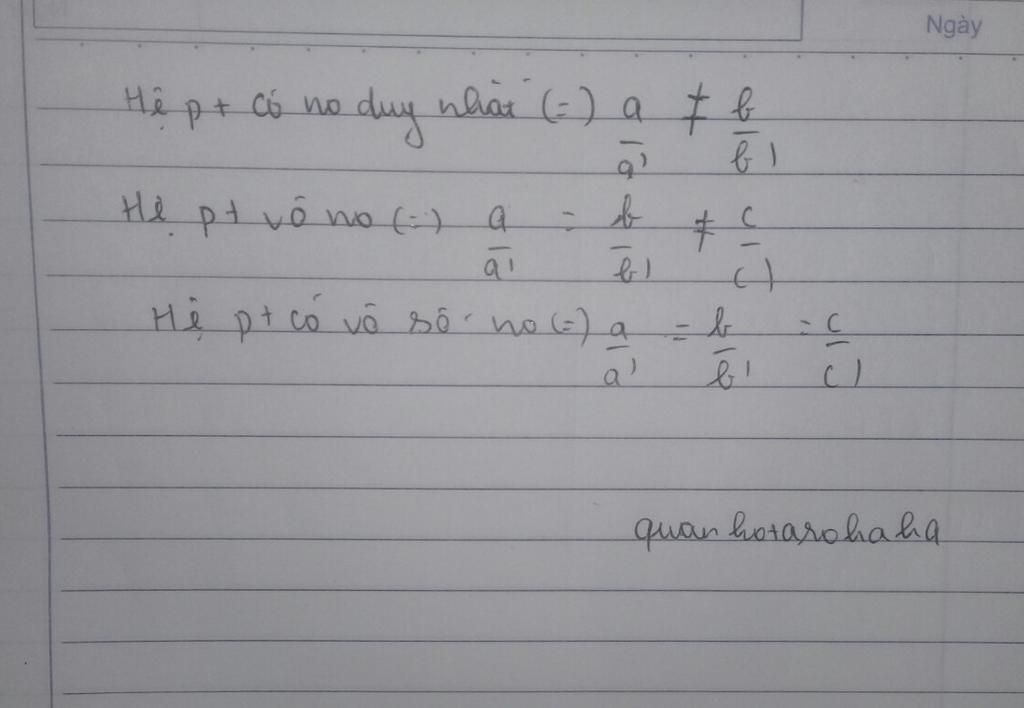 Ngày
Hệ pt có no duy nhất (=) a/a' ≠ b/b'
Hệ pt vô no (=) a/a' = b/b' ≠ c/c'
Hệ pt có vô số no (=) a/a' = b/b' = c/c'
quanhotarohaha